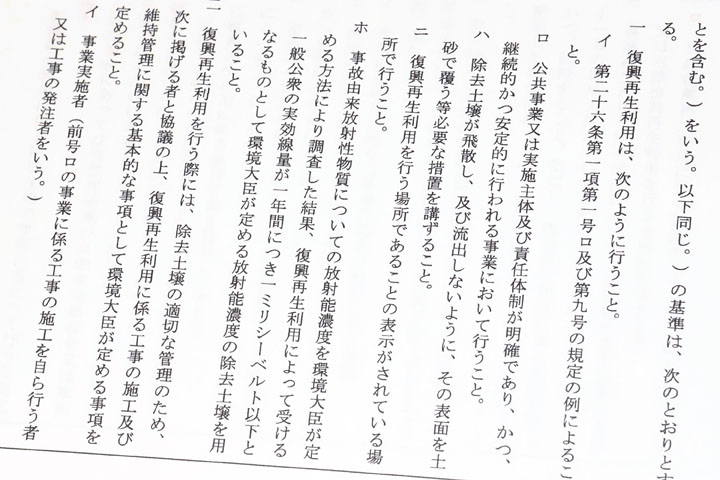 とを含む。）をいう。以下同じ。）の基準は、次のとおりとす
る。
一　復興再生利用は、次のように行うこと。
イ　第二十六条第一項第一号ロ及び第九号の規定の例によるこ
と。
ロ　公共事業又は実施主体及び責任体制が明確であり、かつ、
継続的かつ安定的に行われる事業において行うこと。
ハ　除去土壌が飛散し、及び流出しないように、その表面を土
砂で覆う等必要な措置を講ずること。
ニ　復興再生利用を行う場所であることの表示がされている場
所で行うこと。
ホ　事故由来放射性物質についての放射能濃度を環境大臣が定
める方法により調査した結果、復興再生利用によって受ける
一般公衆の実効線量が一年間につき一ミリシーベルト以下と
なるものとして環境大臣が定める放射能濃度の除去土壌を用
いること。
二　復興再生利用を行う際には、除去土壌の適切な管理のため、
次に掲げる者と協議の上、復興再生利用に係る工事の施工及び
維持管理に関する基本的な事項として環境大臣が定める事項を
定めること。
イ　事業実施者（前号ロの事業に係る工事の施工を自ら行う者
又は工事の発注者をいう。）